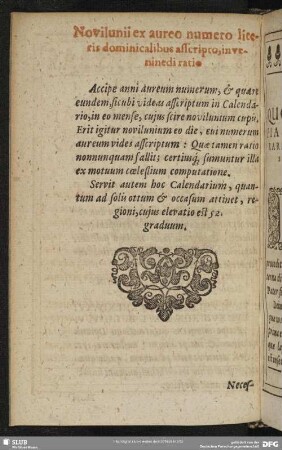 Novilunii ex aureo numero lite-
ris dominicalibus asscripto, inve-
niendi ratio
Accipe anni aureum numerum, & quære
eundem, sicubi videas asscriptum in Calenda-
rio, in eo mense, cujus scire novilunium cupis.
Erit igitur novilunium eo die, cui numerum
aureum vides asscriptum: Quæ tamen ratio
nonnunquam fallit; certiusq́; sumuntur illa
ex motuum cœlestium computatione.
Servit autem hoc Calendarium, quan-
tum ad solis ortum & occasum attinet, re-
gioni, cujus elevatio est 52.
graduum.
Neces-
SLUB
DFG